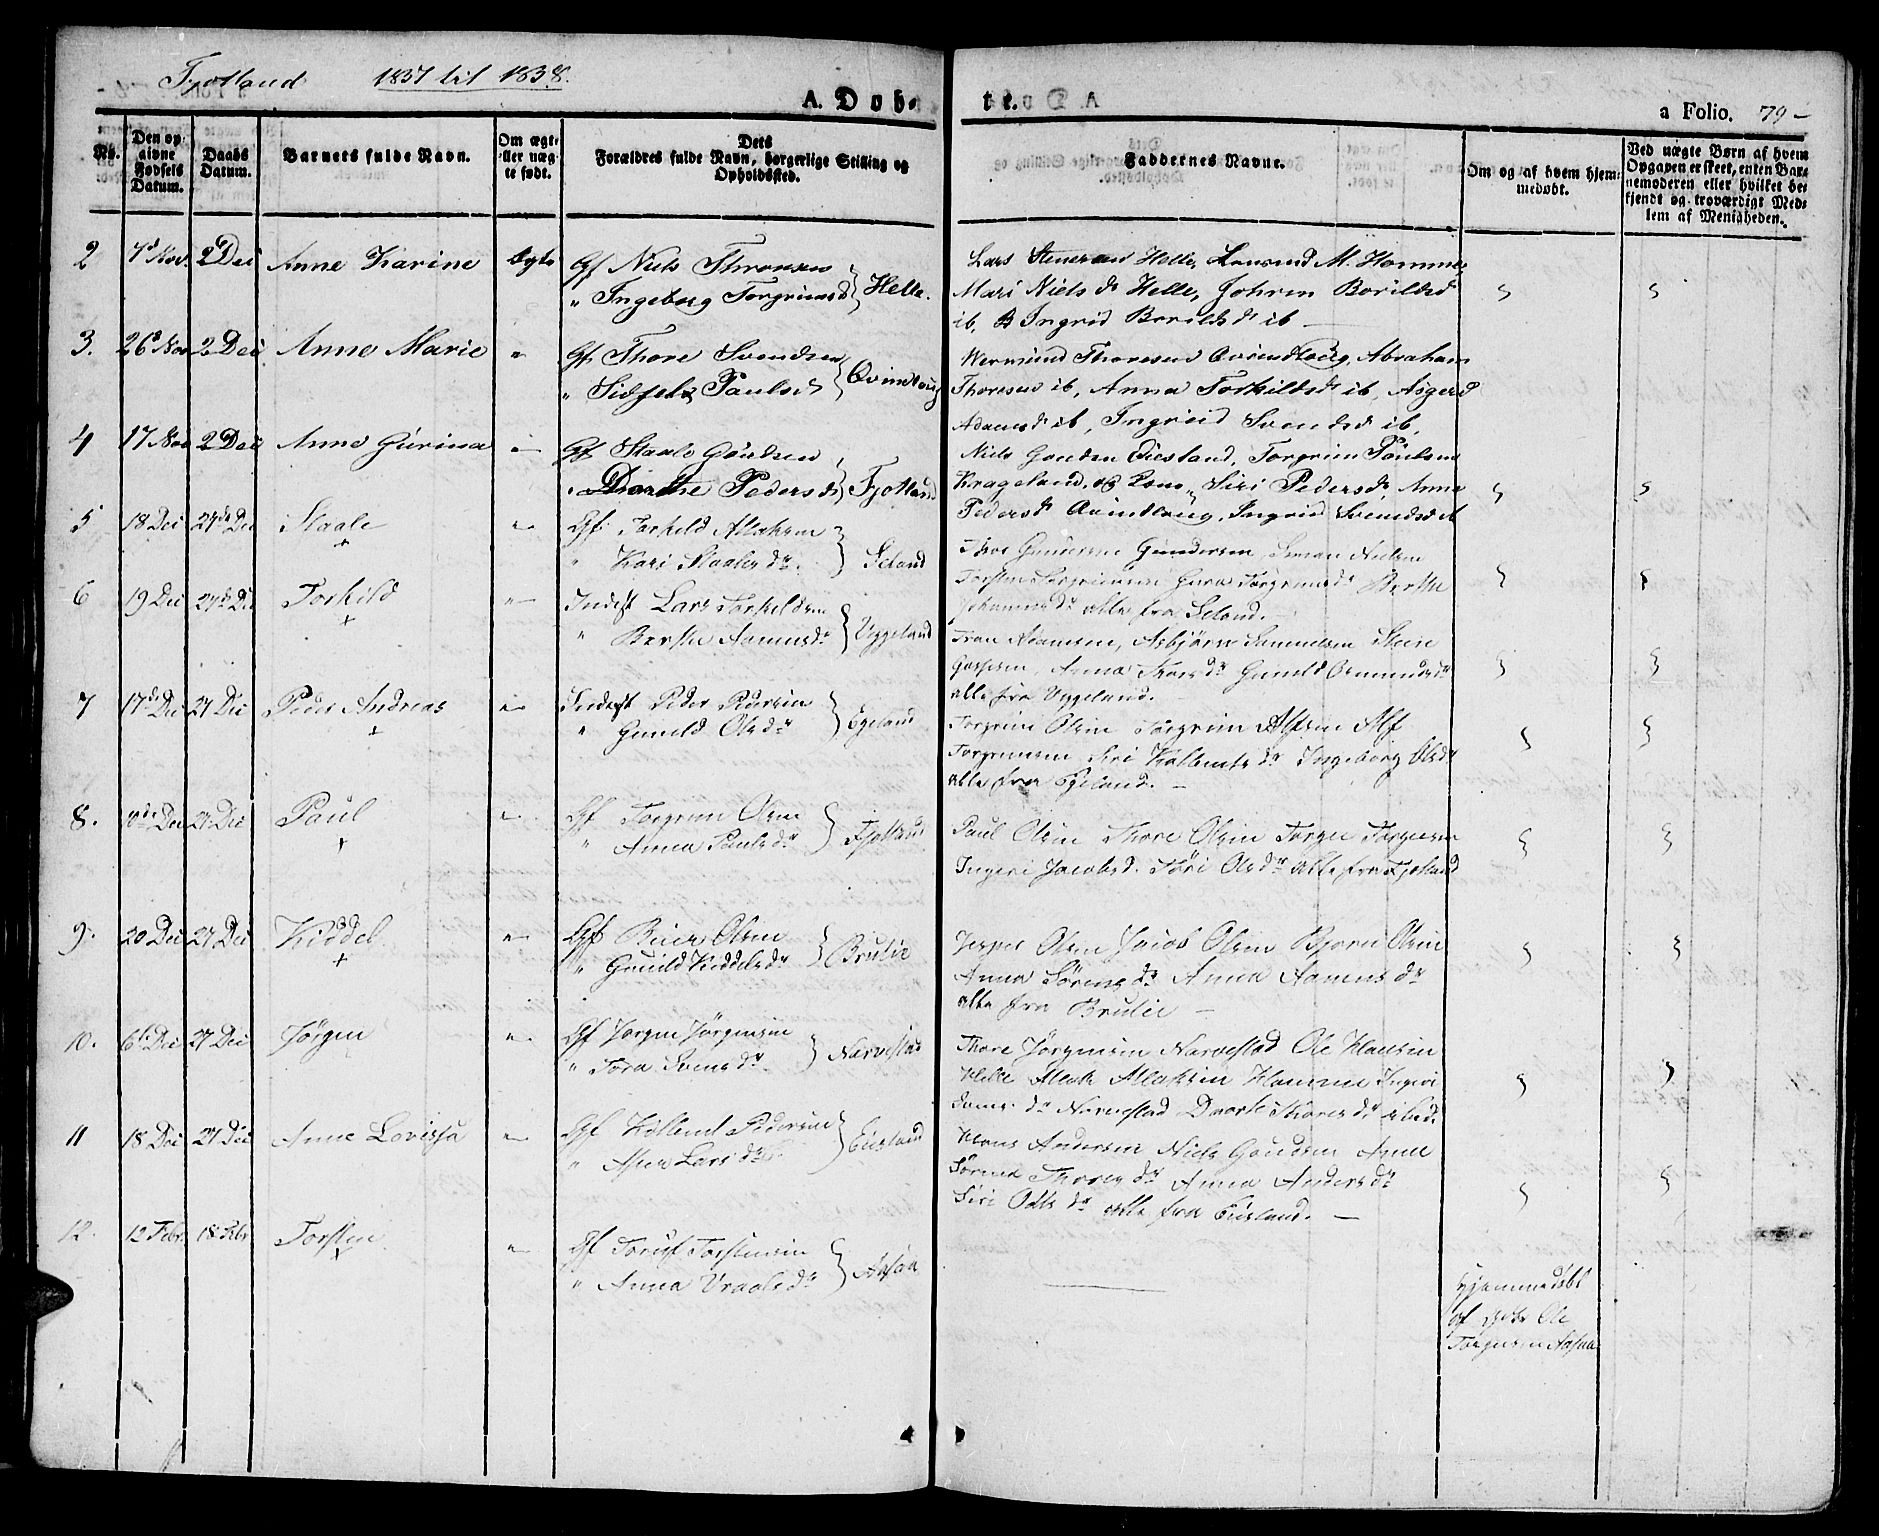 Fjotland 1837 til 1838.
A. Døbte.
a Folio. 79-
No.
Den opgivne Fødsels Datum.
Daabs Datum.
Barnets fulde Navn.
Om ægte eller uægte født.
Dets Forældres fulde Navn, borgerlige Stilling og Opholdssted.
Faddernes Navne.
Om og af hvem hjemmedøbt.
Ved uægte Børn af hvem Opgaven er skeet, enten Barnemoderen eller hvilket bekjendt og troværdigt Medlem af Menigheden.
2 7d Nov. 2 Dec Anne Karine Egte Gf Niels Thorsen
" Ingeborg Torgrimsd } Helle.
Lars Helle, M. Homme,
Mari Niels dr Helle, Johren Borildsd
ib, Ingrid Borilds dr ib
3. 26 Nov 2 Dec Anne Marie " Gf Thore Svendsen
" Sidsel Paulsd } Qvindlaug
Wermund Thoresen Qvindlaug, Abraham
Thoresen ib, Anna Torkildsd ib, Asgerd
Adamsd ib, Ingrid Svendsd ib,
4 17 Nov 2 Dec Anne Gurina " Gf Staale Gundsen
" Dorthe Pedersd } Fjotland
Niels Gundsen Eiesland, Torgrim Paulsen
Krageland, og Kone, Siri Pedersd, Anna
Pedersd Qvindlaug, Ingrid Svendsd
5 18 Dec 27de Dec Staale " Gf. Torkild Atlaksen
+ " Kari Staalesdr. } Seland
Thore Gundersen Gundersen Simon Nielsen
Torsten Torgrimsen Guro Torgrimsdr Berthe
Johannesdr alle fra Seland.
6 19 Dec 27de Dec Torkild " Inderst Lars Torkildsen
+ " Berthe Aanensdr } Uggeland
Tron Adamsen, Asbjørn Samuelsen Steen
Jespersen, Anna Thoresdr Gunild Osmundsdr
alle fra Uggeland.
7 17de Dec 27 Dec Peder Andreas " Inderst Peder Pedersen
+ " Gunild Olsdr } Egeland
Torgrim Olsen Torgrim Alfsen Alf
Torgrimsen Siri Tollevsdr Ingeborg Olsdr
alle fra Egeland.
8. 10de Dec 27 Dec Paul " Gf Torgrim Olsen
+ " Anna Paulsdr } Fjotland
Paul Olsen Thore Olsen Torger Torgersen
Ingeri Jacobsd. Tøri Olsdr alle fra Fjotland
9. 20 Dec 27 Dec Kiddel " Gf Reier Olsen
+ " Gunild Kiddelsdr } Brulie
Jesper Olsen Jacob Olsen Bjørn Olsen
Anna Sørensdr Anna Aanensdr
alle fra Brulie
10. 6te Dec 27 Dec Jørgen " Gf Jørgen Jørgensen
" Tora Svensdr } Narvestad
Thore Jørgensen Narvestad Ole Klausen
Helle Atlak Atlaksen Homme Ingeri
dr Narvestad Dorthe Thoresdr ibid.
11 18 Dec 27 Dec Anne Lovissa " Gf Tollev Pedersen
" Asne Larsdr } Eiesland
Hans Andersen Niels Gundsen Anne
Sørine Thoresdr Anna Andersdr
Siri Odsdr alle fra Eiesland.
12. 12 Febr. 18 Febr Torsten " Gf Torkel Torstensen
+ " Anna Vraalsdr } Aasen
Hjemmedøbt
af Ole
Torgersen Aasen